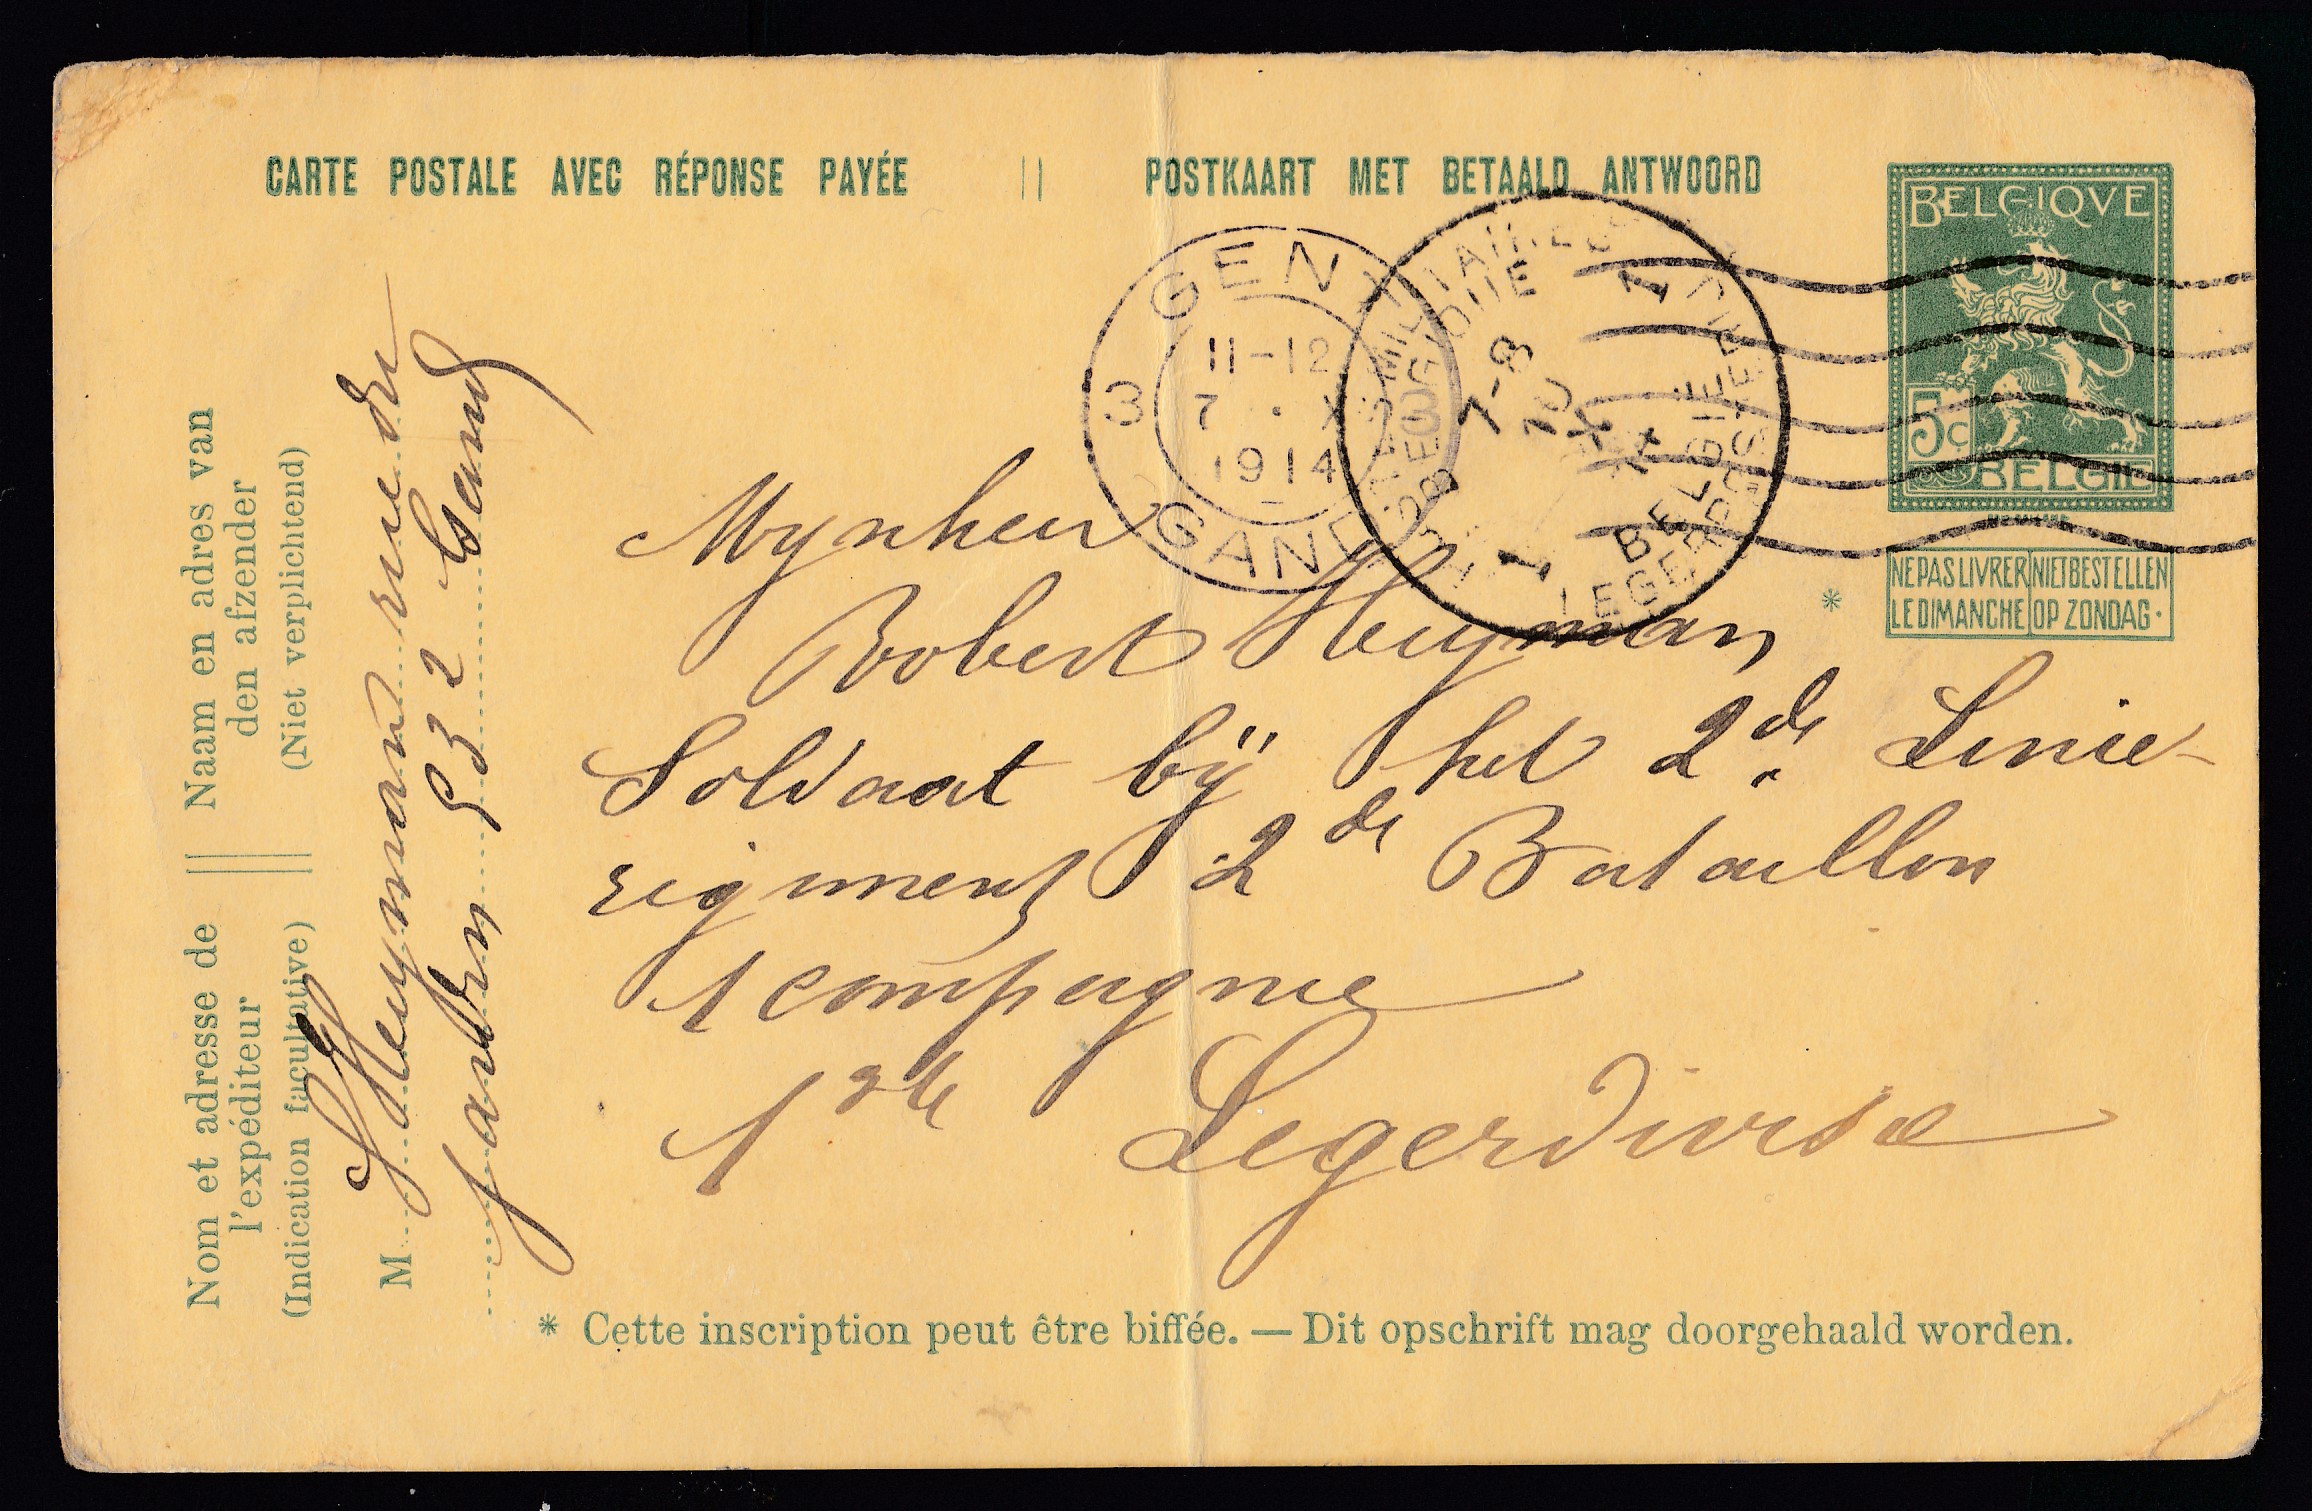 CARTE POSTALE AVEC RÉPONSE PAYÉE || POSTKAART MET BETAALD ANTWOORD
BELGIQVE
5c
BELGIË
NE PAS LIVRER LE DIMANCHE
NIET BESTELLEN OP ZONDAG.
*
GENT
3 3
11-12
7 · X
1914
GAND
POSTES MILITAIRES
BELGIQUE
1
7-8
10
X
14
1
BELGIE
LEGERPOSTERIJ
Mynheer
Robert Heyman
Soldaat bÿ het 2de Linie-
regiment 2de Bataillon
1 compagnie
1ste Legerdivisie
Nom et adresse de || Naam en adres van
l'expéditeur den afzender
(Indication facultative) || (Niet verplichtend)
M Heymans rue du
Jardin 532 Gand
* Cette inscription peut être biffée. — Dit opschrift mag doorgehaald worden.